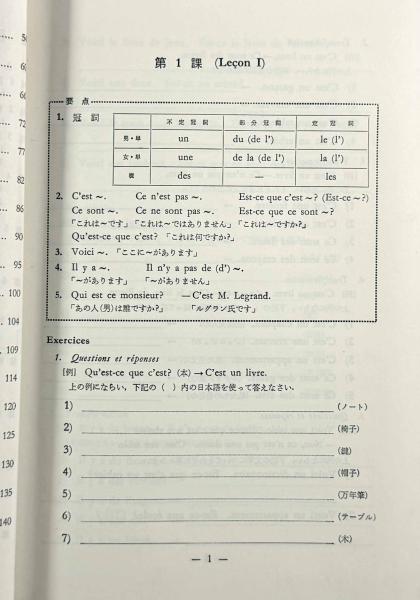 第 1 課 (Leçon I)
要 点
1. 冠 詞
不 定 冠 詞 部 分 冠 詞 定 冠 詞
男・単 un du (de l') le (l')
女・単 une de la (de l') la (l')
複 des — les
2. C'est ~. Ce n'est pas ~. Est-ce que c'est ~? (Est-ce ~?)
Ce sont ~. Ce ne sont pas ~. Est-ce que ce sont ~?
「これは~です」「これは~ではありません」「これは~ですか?」
Qu'est-ce que c'est? 「これは何ですか?」
3. Voici ~. 「ここに~があります」
4. Il y a ~. Il n'y a pas de (d') ~.
「~があります」 「~がありません」
5. Qui est ce monsieur? —C'est M. Legrand.
「あの人(男)は誰ですか?」 「ルグラン氏です」
Exercices
1. Questions et réponses
[例] Qu'est-ce que c'est? (本) → C'est un livre.
上の例にならい、下記の ( ) 内の日本語を使って答えなさい.
1) (ノート)
2) (椅子)
3) (鍵)
4) (帽子)
5) (万年筆)
6) (テーブル)
7) (木)
— 1 —
90
95
100
104
109
114
120
135
140